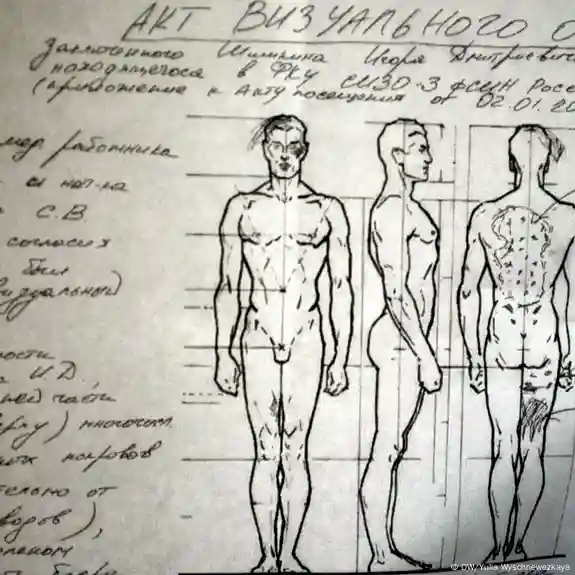 АКТ ВИЗУАЛЬНОГО О
Заключенного Шишкина Игоря Дмитриевич
находящегося в ФКУ СИЗО-3 ФСИН Росс
(приложение к акту посещения от 02.01.20
мед работника
и нач-ка
С.В.
согласия
был
визуальный)
ности
И.Д.,
ней части
многочисл
покровов
тельно от
водов),
© DW/Yulia Wyschnewezkaya